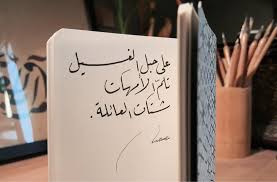 على حبل الغسيل
تلمّ الأمهات
شتات العائلة.